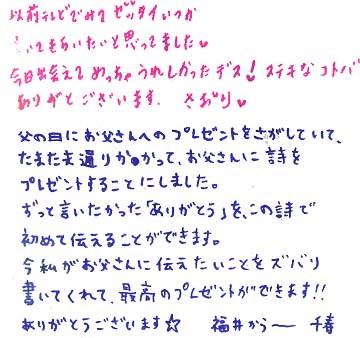 以前テレビでみてゼッタイいつか
書いてもらいたいと思ってました♥
今日出会えてめっちゃうれしかったデス！ステキなコトバ
ありがとございます. さおり♥
父の日にお父さんへのプレゼントをさがしていて、
たまたま通りかかって、お父さんに詩を
プレゼントすることにしました。
ずっと言いたかった「ありがとう」を、この詩で
初めて伝えることができます。
今私がお父さんに伝えたいことをズバリ
書いてくれて、最高のプレゼントができます!!
ありがとうございます☆ 福井から〜 千春